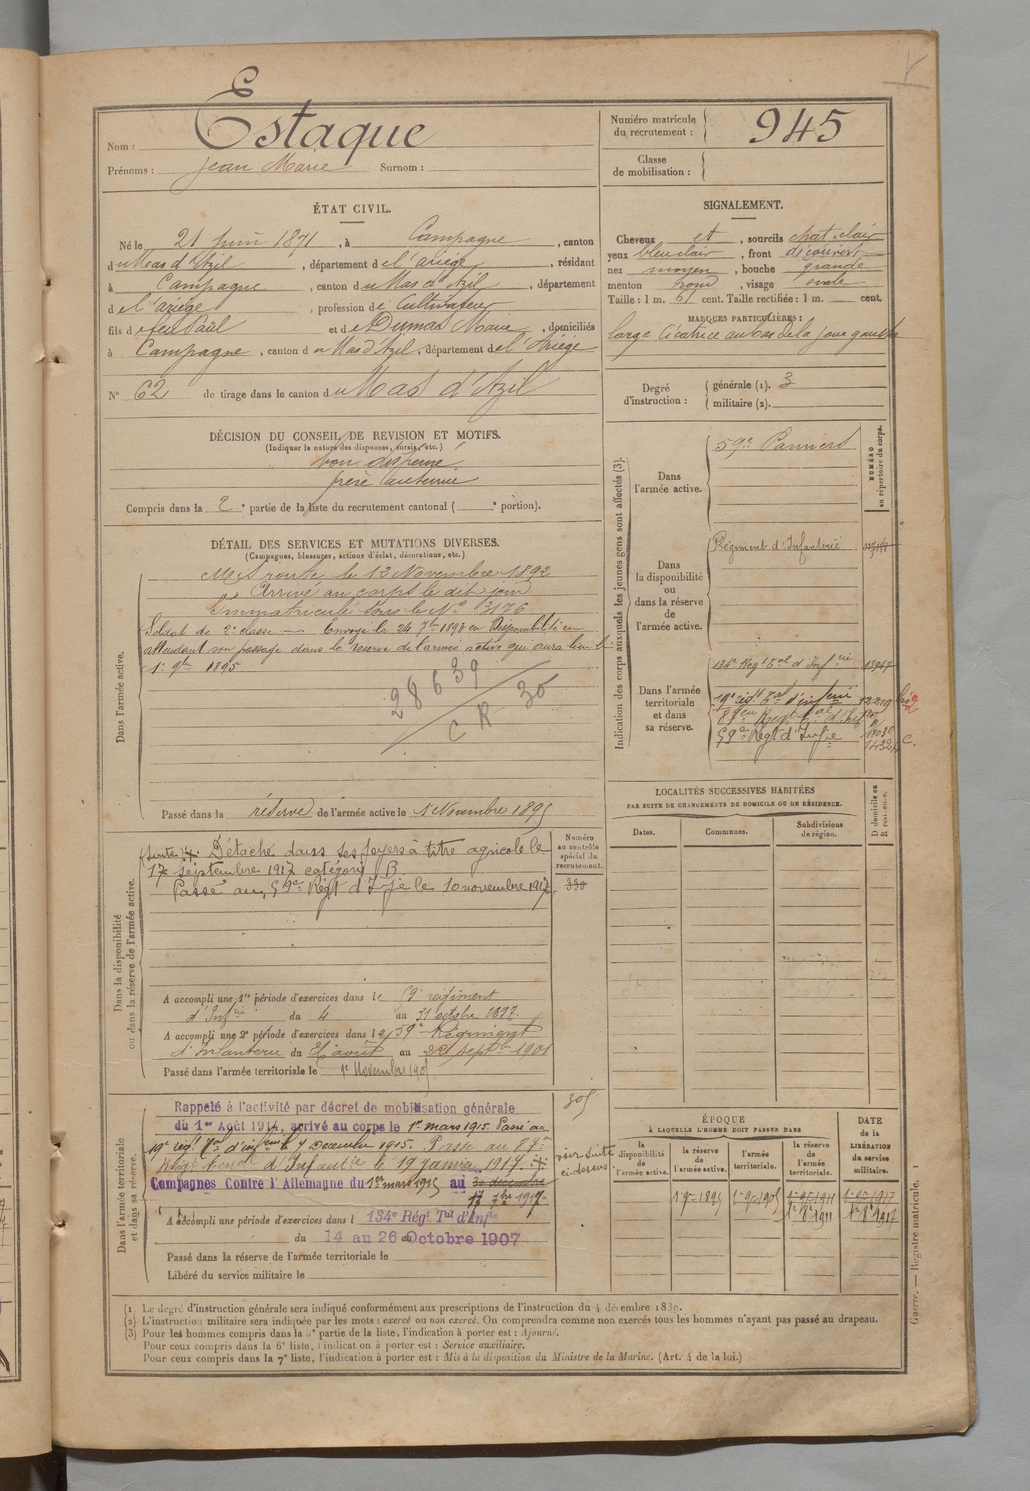 Nom : Estaque
Prénoms : Jean Marie Surnom :
Numéro matricule du recrutement : 945
Classe de mobilisation :
ÉTAT CIVIL.
Né le 21 Juin 1871, à Campagne, canton
du Mas d'Azil, département de l'ariège, résidant
à Campagne, canton du Mas d'Azil, département
de l'ariège, profession de Cultivateur
fils de feu Paul et de Dumas Marie, domiciliés
à Campagne, canton du Mas d'Azil, département de l'Ariège
N° 62 de tirage dans le canton du Mas d'Azil
SIGNALEMENT.
Cheveux et, sourcils chat. clair
yeux bleu clair, front découvert
nez moyen, bouche grande
menton rond, visage ovale
Taille : 1 m. 61 cent. Taille rectifiée : 1 m. cent.
MARQUES PARTICULIÈRES :
large cicatrice au bas de la joue gauche
Degré d'instruction : générale (1). 3
militaire (2).
DÉCISION DU CONSEIL DE REVISION ET MOTIFS.
(Indiquer la nature des dispenses, sursis, etc.)
bon dispensé
frère
Compris dans la 2e partie de la liste du recrutement cantonal ( e portion).
DÉTAIL DES SERVICES ET MUTATIONS DIVERSES.
(Campagnes, blessures, actions d'éclat, décorations, etc.)
Dans l'armée active.
Mis en route le 12 Novembre 1892
Arrivé au corps le dit jour
Immatriculé sous le N° 3176
Soldat de 2e classe — Envoyé le 24 7bre 1893 en Disponibilité en
attendant son passage dans la réserve de l'armée active qui aura lieu le
1er 9bre 1895
28639
CR 30
Passé dans la réserve de l'armée active le 1er Novembre 1895
Indication des corps auxquels les jeunes gens sont affectés (3).
NUMÉRO au répertoire du corps.
Dans l'armée active.
59e Pamiers
Dans la disponibilité ou dans la réserve de l'armée active.
Régiment d'Infanterie
Dans l'armée territoriale et dans sa réserve.
134e Régt Tal d'Infrie
19e régt Tal d'infrie 12219
87e Regt Tal d'Inf
59e Regt d'Infie
Dans la disponibilité ou dans la réserve de l'armée active.
Numéro au contrôle spécial du recrutement.
330
(suite) Détaché dans ses foyers à titre agricole le
17 septembre 1917 catégorie B.
Passé au 59e Régt d'Infie le 10 novembre 1917.
A accompli une 1re période d'exercices dans le 59e régiment
d'Infrie du 4 au 31 octobre 1897
A accompli une 2e période d'exercices dans le 59e Régiment
d'infanterie du août au sept 1901
Passé dans l'armée territoriale le 1er Novembre 1905
LOCALITÉS SUCCESSIVES HABITÉES
PAR SUITE DE CHANGEMENTS DE DOMICILE OU DE RÉSIDENCE.
Dates.
Communes.
Subdivisions de région.
D domicile ou R résidence.
Dans l'armée territoriale et dans sa réserve.
305
Rappelé à l'activité par décret de mobilisation générale
du 1er Août 1914, arrivé au corps le 1er mars 1915. Passé au
19e régt Tal d'infrie le 7 Décembre 1915. Passé au 87e
Régt Territ d'Infantie le 19 janvier 1917.
voir suite ci-dessus
Campagnes Contre l'Allemagne du 1er mars 1915 au 30 décembre
17 7bre 1917
A accompli une période d'exercices dans l 134e Régt Tal d'Infie
du 14 au 26 Octobre 1907
Passé dans la réserve de l'armée territoriale le
Libéré du service militaire le
ÉPOQUE
À LAQUELLE L'HOMME DOIT PASSER DANS
la disponibilité de l'armée active.
la réserve de l'armée active.
l'armée territoriale.
la réserve de l'armée territoriale.
DATE de la LIBÉRATION du service militaire.
1er 9bre 1895
1er 9bre 1905
1er 9bre 1911
1er 9bre 1917
1er 8bre 1911
1er 8bre 1917
(1) Le degré d'instruction générale sera indiqué conformément aux prescriptions de l'instruction du 4 décembre 1889.
(2) L'instruction militaire sera indiquée par les mots : exercé ou non exercé. On comprendra comme non exercés tous les hommes n'ayant pas passé au drapeau.
(3) Pour les hommes compris dans la 5e partie de la liste, l'indication à porter est : Ajourné.
Pour ceux compris dans la 6e liste, l'indication à porter est : Service auxiliaire.
Pour ceux compris dans la 7e liste, l'indication à porter est : Mis à la disposition du Ministre de la Marine. (Art. 4 de la loi.)
Guerre. — Registre matricule. 1